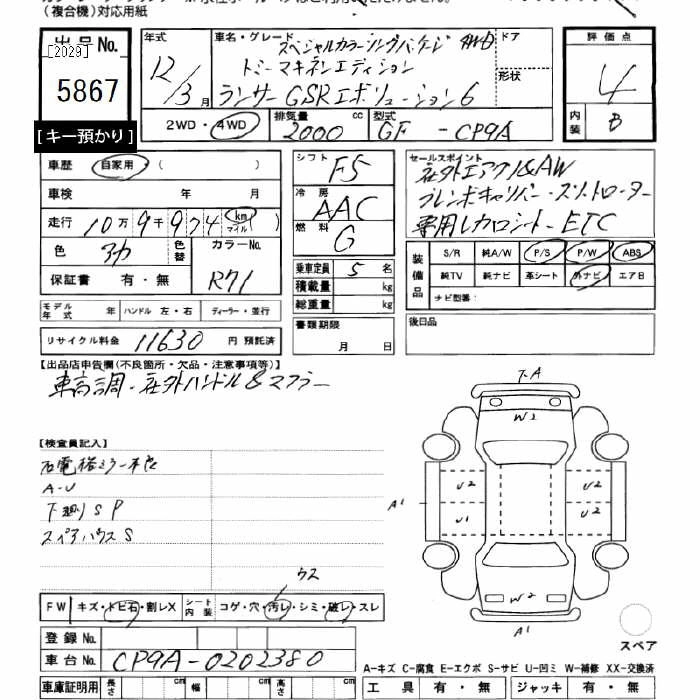 (複合機)対応用紙
出品No.
[2029]
5867
[キー預かり]
年式
12/3月
車名・グレード
スペシャルカラーリングパッケージ 4WD
トミーマキネンエディション
ランサー GSRエボリューション6
ドア
形状
評価点
4
内装
B
2WD・4WD
排気量
2000 cc
型式
GF - CP9A
車歴 自家用 ( )
車検 年 月
走行 10万9千974 km マイル
色 赤 色替 カラーNo. R71
保証書 有・無
シフト F5
冷房 AAC
燃料 G
乗車定員 5 名
積載量 kg
総重量 kg
書類期限
月 日
セールスポイント
社外エアクリ&AW
ブレンボキャリパー・スリットローター
専用レカロシート・ETC
装備品
S/R 純A/W P/S P/W ABS
純TV 純ナビ 革シート 外ナビ エアB
ナビ型番:
後日品
モデル年式 年 ハンドル 左・右 ディーラー・並行
リサイクル料金 11630 円 預託済
【出品店申告欄(不良箇所・欠品・注意事項等)】
車高調・社外ハンドル&マフラー
【検査員記入】
右電格ミラー不良
A-U
下廻りSP
スペアハウスS
ウス
FW キズ・トビ石・割レX シート内装 コゲ・穴・汚レ・シミ・破レ・スレ
登録No.
車台No. CP9A-0202380
車庫証明用 長さ cm 幅 cm 高さ cm
下A
W2
U2
U2
A1
U1
U2
W2
A1
スペア
A-キズ C-腐食 E-エクボ S-サビ U-凹ミ W-補修 XX-交換済
工具 有・無 ジャッキ 有・無